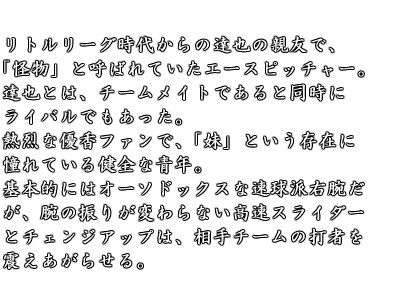 リトルリーグ時代からの達也の親友で、
「怪物」と呼ばれていたエースピッチャー。
達也とは、チームメイトであると同時に
ライバルでもあった。
熱烈な優香ファンで、「妹」という存在に
憧れている健全な青年。
基本的にはオーソドックスな速球派右腕だ
が、腕の振りが変わらない高速スライダー
とチェンジアップは、相手チームの打者を
震えあがらせる。